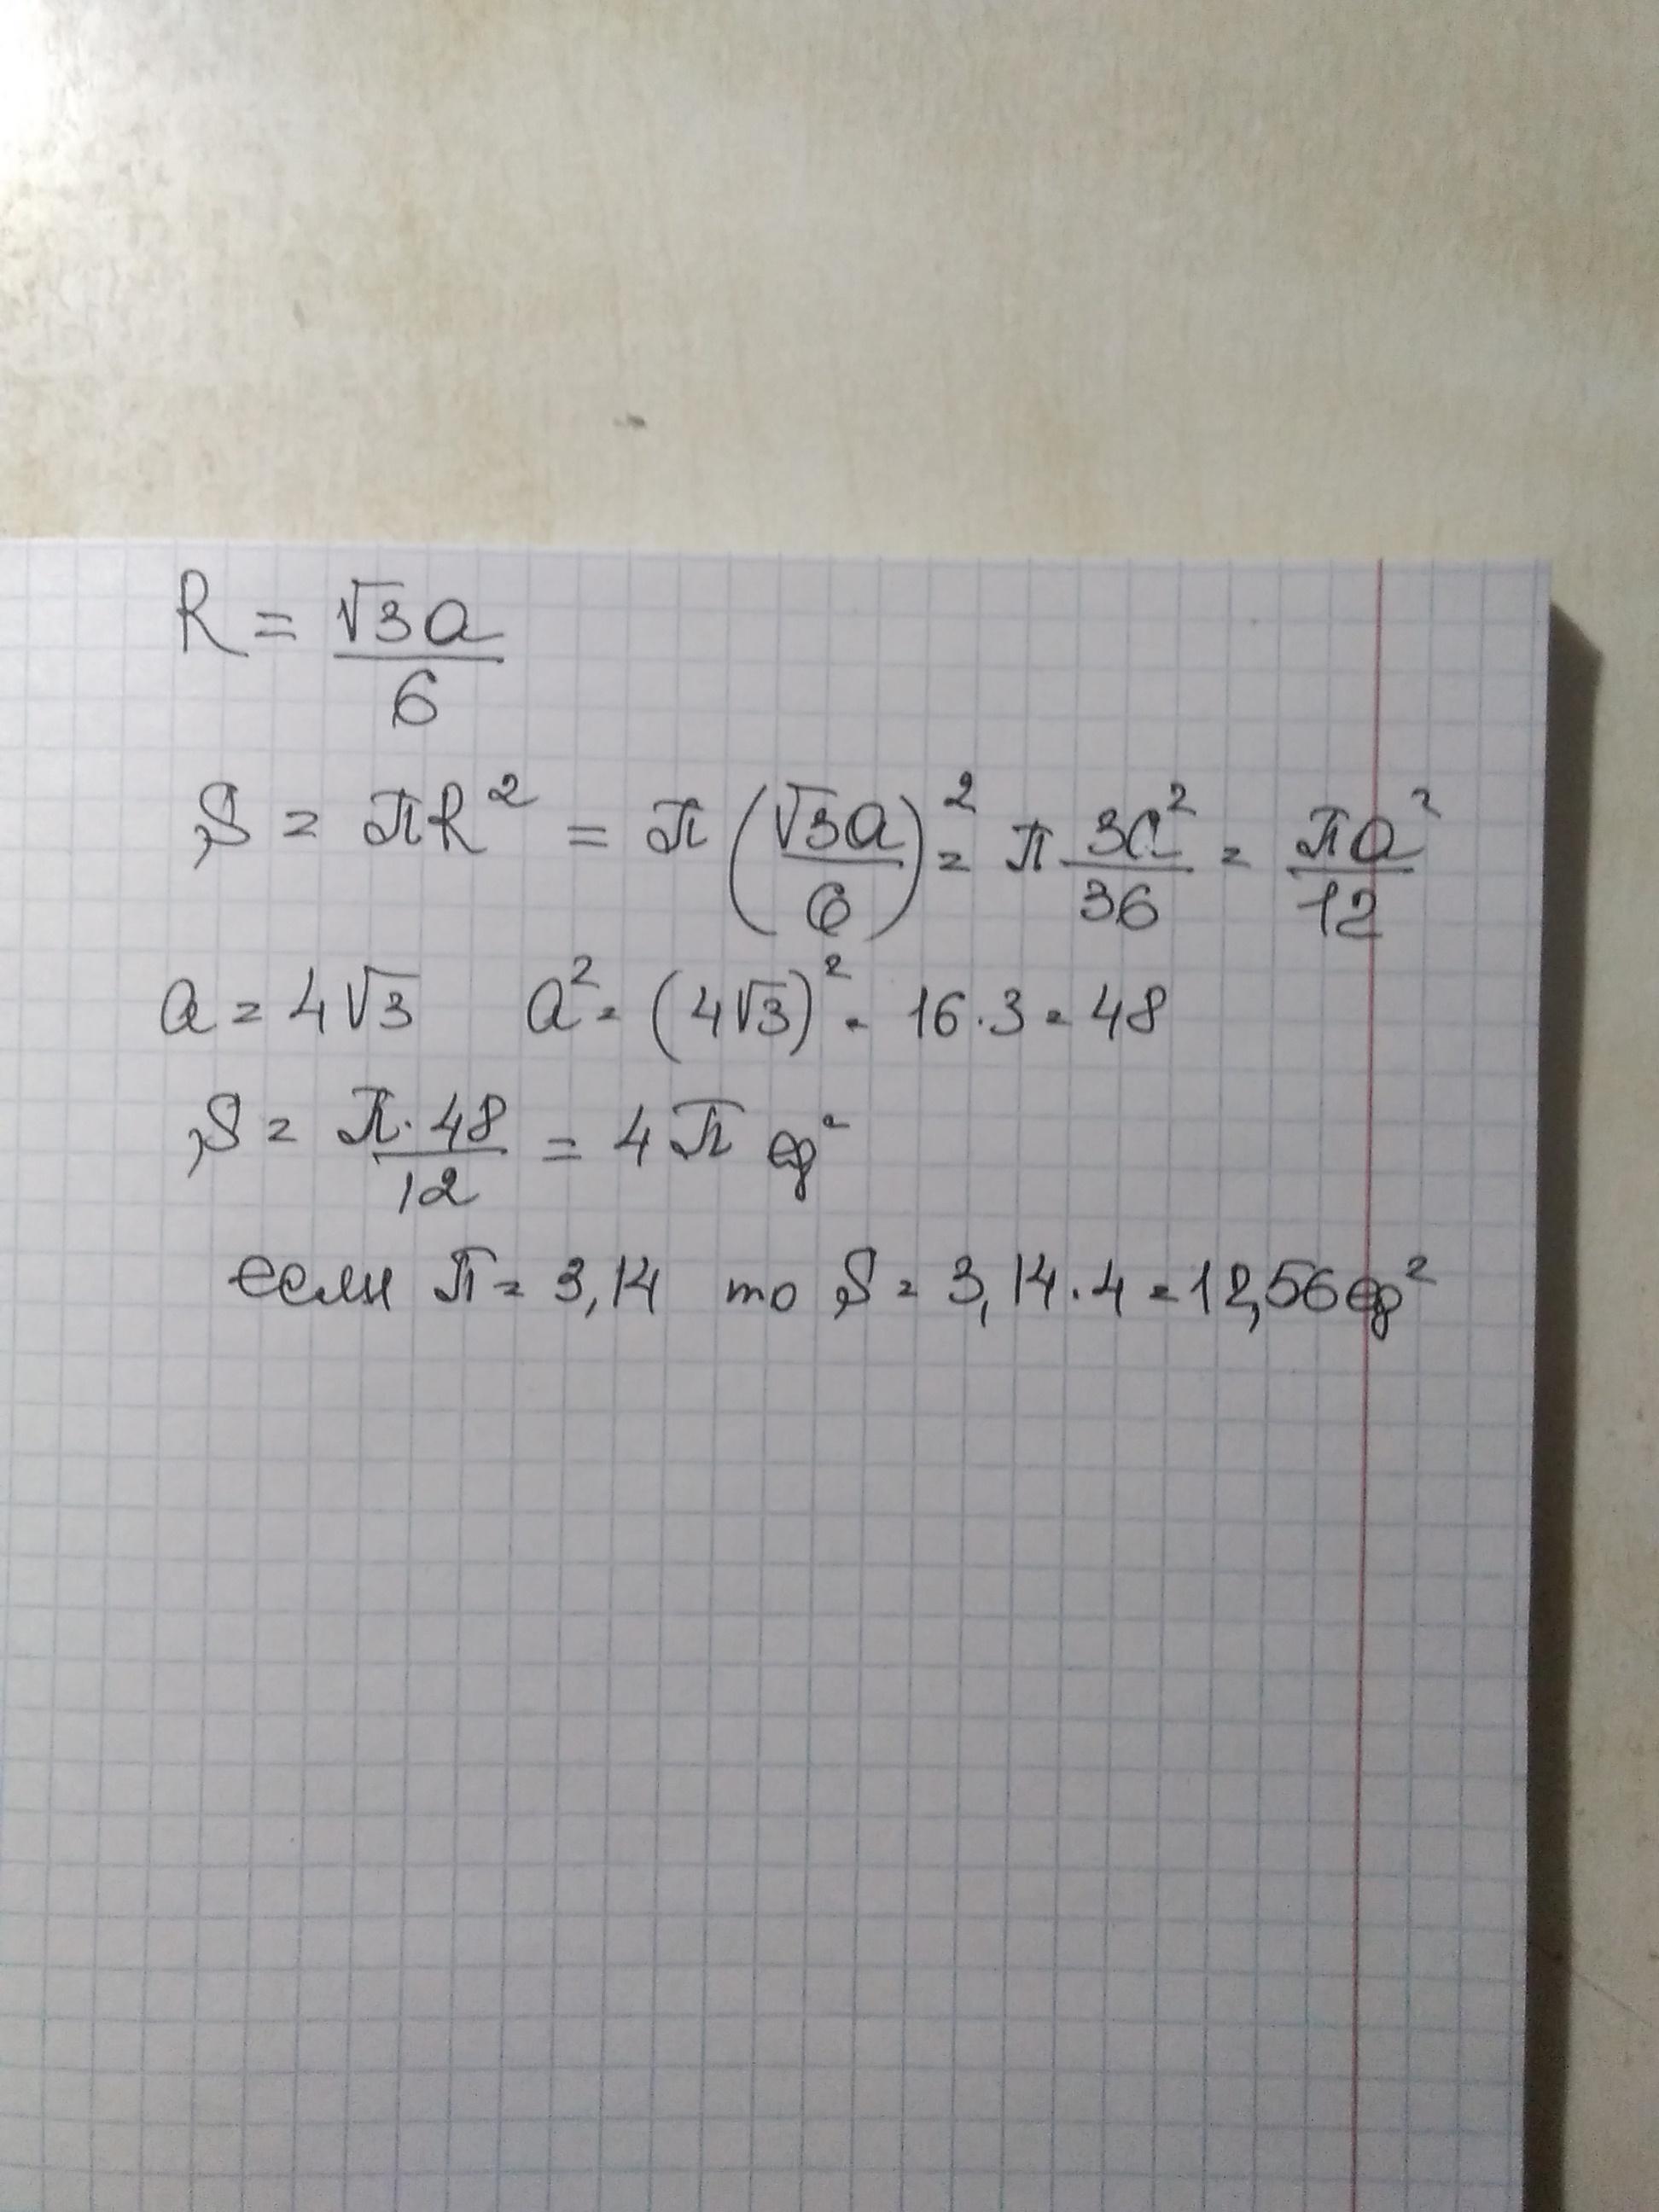 R = √3a/6
S = πR² = π(√3a/6)² = π 3a²/36 = πa²/12
a = 4√3 a² = (4√3)² = 16·3 = 48
S = π·48/12 = 4π ед²
если π = 3,14 то S = 3,14·4 = 12,56 ед²